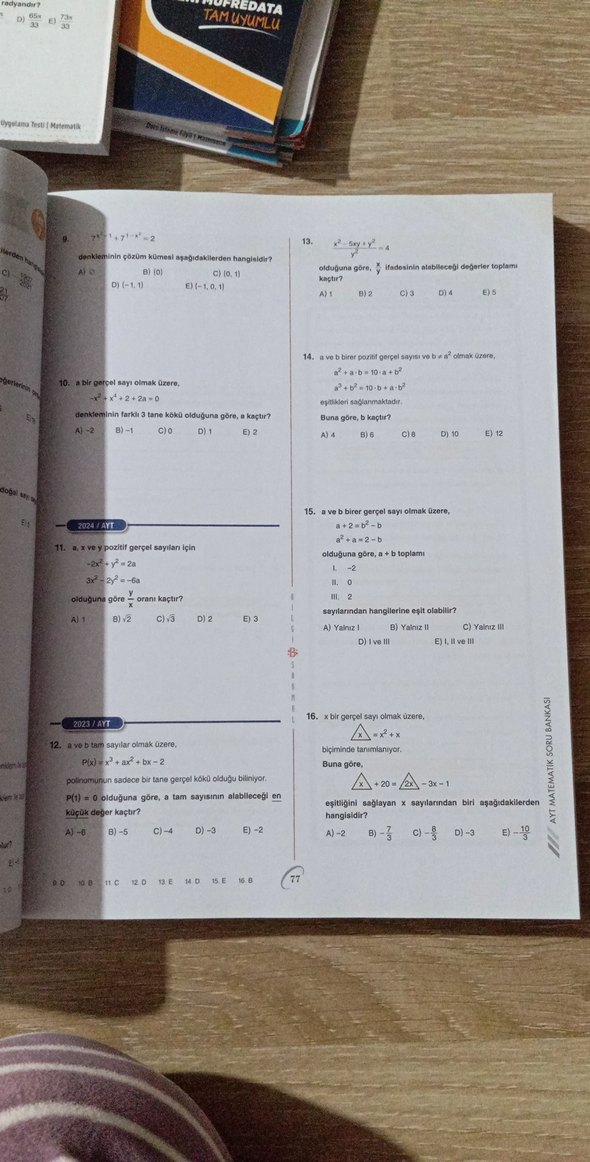 radyandır?
D) 65π/33 E) 73π/33
Uygulama Testi | Matematik
MÜFREDATA
TAM UYUMLU
9. 7^(x²-1) + 7^(1-x²) = 2
denkleminin çözüm kümesi aşağıdakilerden hangisidir?
A) ∅ B) {0} C) {0, 1}
D) {−1, 1} E) {−1, 0, 1}
10. a bir gerçel sayı olmak üzere,
−x² + x⁴ + 2 + 2a = 0
denkleminin farklı 3 tane kökü olduğuna göre, a kaçtır?
A) −2 B) −1 C) 0 D) 1 E) 2
2024 / AYT
11. a, x ve y pozitif gerçel sayıları için
−2x² + y² = 2a
3x² − 2y² = −6a
olduğuna göre y/x oranı kaçtır?
A) 1 B) √2 C) √3 D) 2 E) 3
2023 / AYT
12. a ve b tam sayılar olmak üzere,
P(x) = x³ + ax² + bx − 2
polinomunun sadece bir tane gerçel kökü olduğu biliniyor.
P(1) = 0 olduğuna göre, a tam sayısının alabileceği en
küçük değer kaçtır?
A) −6 B) −5 C) −4 D) −3 E) −2
9. D 10. B 11. C 12. D 13. E 14. D 15. E 16. B
77
13. (x² − 5xy + y²)/y² = 4
olduğuna göre, x/y ifadesinin alabileceği değerler toplamı
kaçtır?
A) 1 B) 2 C) 3 D) 4 E) 5
14. a ve b birer pozitif gerçel sayısı ve b ≠ a² olmak üzere,
a² + a · b = 10 · a + b²
a³ + b² = 10 · b + a · b²
eşitlikleri sağlanmaktadır.
Buna göre, b kaçtır?
A) 4 B) 6 C) 8 D) 10 E) 12
15. a ve b birer gerçel sayı olmak üzere,
a + 2 = b² − b
a² + a = 2 − b
olduğuna göre, a + b toplamı
I. −2
II. 0
III. 2
sayılarından hangilerine eşit olabilir?
A) Yalnız I B) Yalnız II C) Yalnız III
D) I ve III E) I, II ve III
16. x bir gerçel sayı olmak üzere,
x = x² + x
biçiminde tanımlanıyor.
Buna göre,
x + 20 = 2x − 3x − 1
eşitliğini sağlayan x sayılarından biri aşağıdakilerden
hangisidir?
A) −2 B) −7/3 C) −8/3 D) −3 E) −10/3
AYT MATEMATİK SORU BANKASI